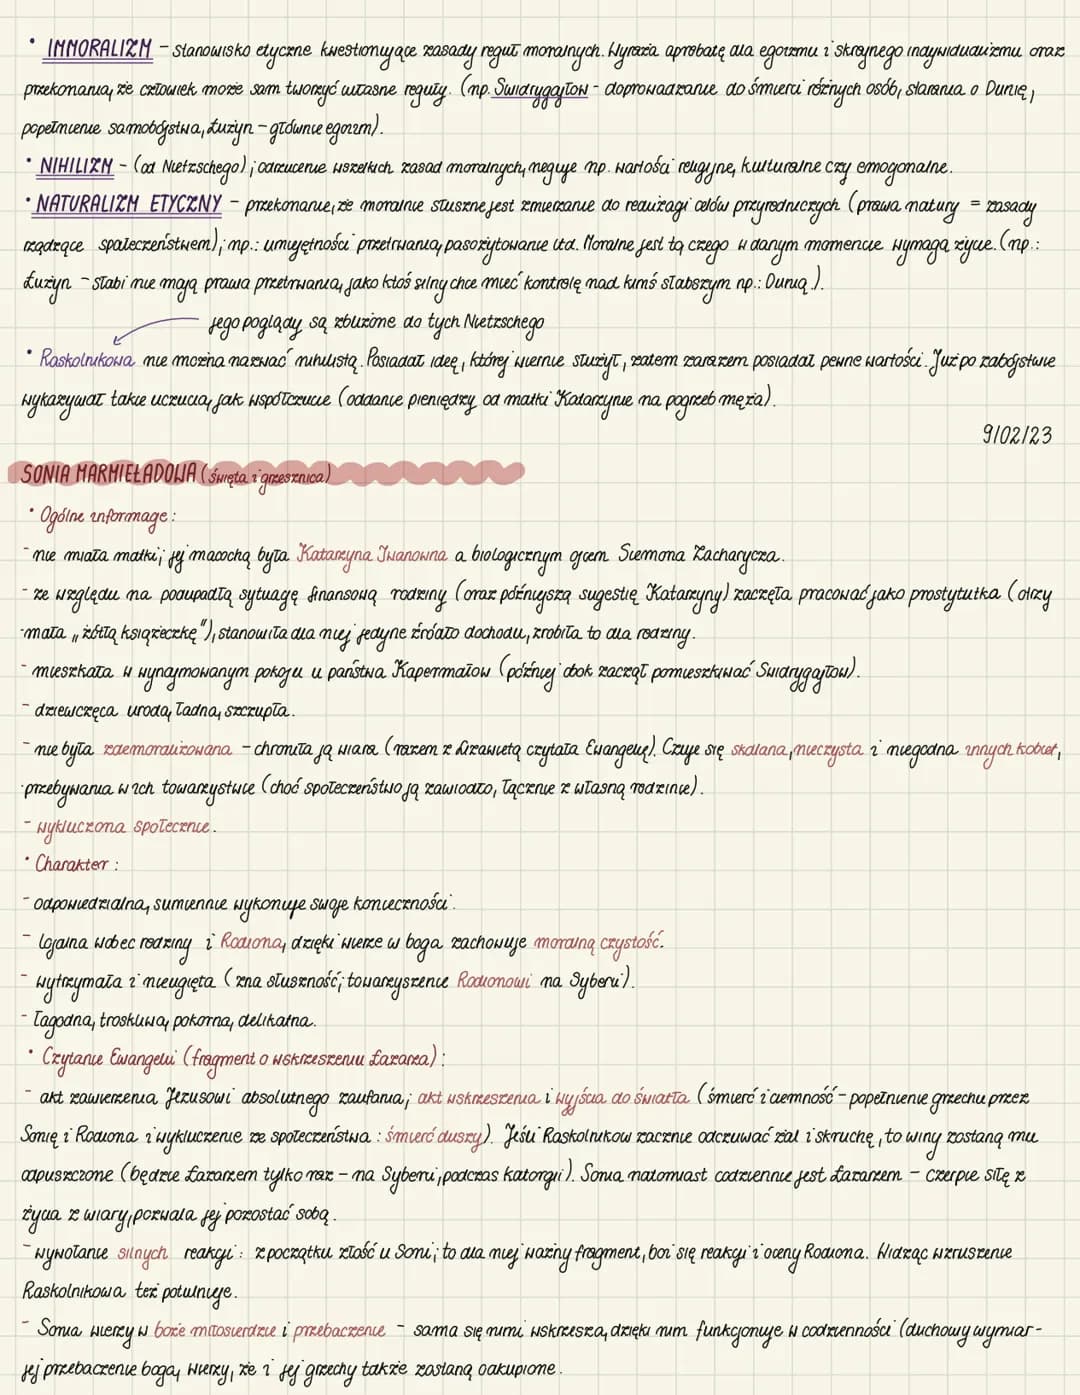 • IMMORALIZM - stanowisko etyczne kwestionujące zasady reguł moralnych. Wyraża aprobatę dla egoizmu i skrajnego indywidualizmu oraz
przekonania, że człowiek może sam tworzyć własne reguły. (np. Świdrygajłow - doprowadzanie do śmierci różnych osób, starania o Dunię,
popełnienie samobójstwa, Łużyn - głównie egoizm).
• NIHILIZM - (od Nietzschego); odrzucenie wszelkich zasad moralnych, neguje np. wartości religijne, kulturalne czy emocjonalne.
• NATURALIZM ETYCZNY - przekonanie, że moralnie słuszne jest zmierzanie do realizacji celów przyrodniczych (prawa natury = zasady
rządzące społeczeństwem); np.: umiejętności przetrwania, pasożytowanie itd. Moralne jest to, czego w danym momencie wymaga życie. (np.:
Łużyn - słabi nie mają prawa przetrwania, jako ktoś silny chce mieć kontrolę nad kimś słabszym np.: Dunią.).
jego poglądy są zbliżone do tych Nietzschego
• Raskolnikowa nie można nazwać nihilistą. Posiadał ideę, której wiernie służył, zatem zarazem posiadał pewne wartości. Już po zabójstwie
wykazywał takie uczucia, jak współczucie (oddanie pieniędzy od matki Katarzynie na pogrzeb męża).
9/02/23
SONIA MARMIEŁADOWA (święta i grzesznica)
• Ogólne informacje:
- nie miała matki; jej macochą była Katarzyna Iwanowna a biologicznym ojcem Siemiona Zacharycza.
- ze względu na podupadłą sytuację finansową rodziny (oraz późniejszą sugestię Katarzyny) zaczęła pracować jako prostytutka (otrzy
-mała „żółtą książeczkę"), stanowiła dla niej jedyne źródło dochodu, zrobiła to dla rodziny.
- mieszkała w wynajmowanym pokoju u państwa Kapernałow (później obok zaczął pomieszkiwać Świdrygajłow).
- dziewczęca uroda, ładna, szczupła.
- nie była zdemoralizowana - chroniła ją wiara (razem z Lizawietą czytała Ewangelię). Czuje się skalana, nieczysta i niegodna innych kobiet,
przebywania w ich towarzystwie (choć społeczeństwo ją zawiodło, łącznie z własną rodziną).
- wykluczona społecznie.
• Charakter:
- odpowiedzialna, sumiennie wykonuje swoje konieczności.
- lojalna wobec rodziny i Rodiona, dzięki wierze w boga zachowuje moralną czystość.
- wytrzymała i nieugięta (zna słuszność; towarzyszenie Rodionowi na Syberii).
- łagodna, troskliwa, pokorna, delikatna.
• Czytanie Ewangelii (fragment o wskrzeszeniu Łazarza):
- akt zawierzenia Jezusowi absolutnego zaufania; akt wskrzeszenia i wyjścia do światła (śmierć i ciemność - popełnienie grzechu przez
Sonię i Rodiona i wykluczenie ze społeczeństwa: śmierć duszy). Jeśli Raskolnikow zacznie odczuwać żal i skruchę, to winy zostaną mu
odpuszczone (będzie Łazarzem tylko raz - na Syberii, podczas katorgi). Sonia natomiast codziennie jest Łazarzem - czerpie siłę z
życia z wiary, pozwala jej pozostać sobą.
- wywołanie silnych reakcji: z początku złość u Soni; to dla niej ważny fragment, boi się reakcji i oceny Rodiona. Widząc wzruszenie
Raskolnikowa też potulnieje.
- Sonia wierzy w boże miłosierdzie i przebaczenie - sama się nimi wskrzesza, dzięki nim funkcjonuje w codzienności (duchowy wymiar-
jej przebaczenie boga, wierzy, że i jej grzechy także zostaną odkupione.